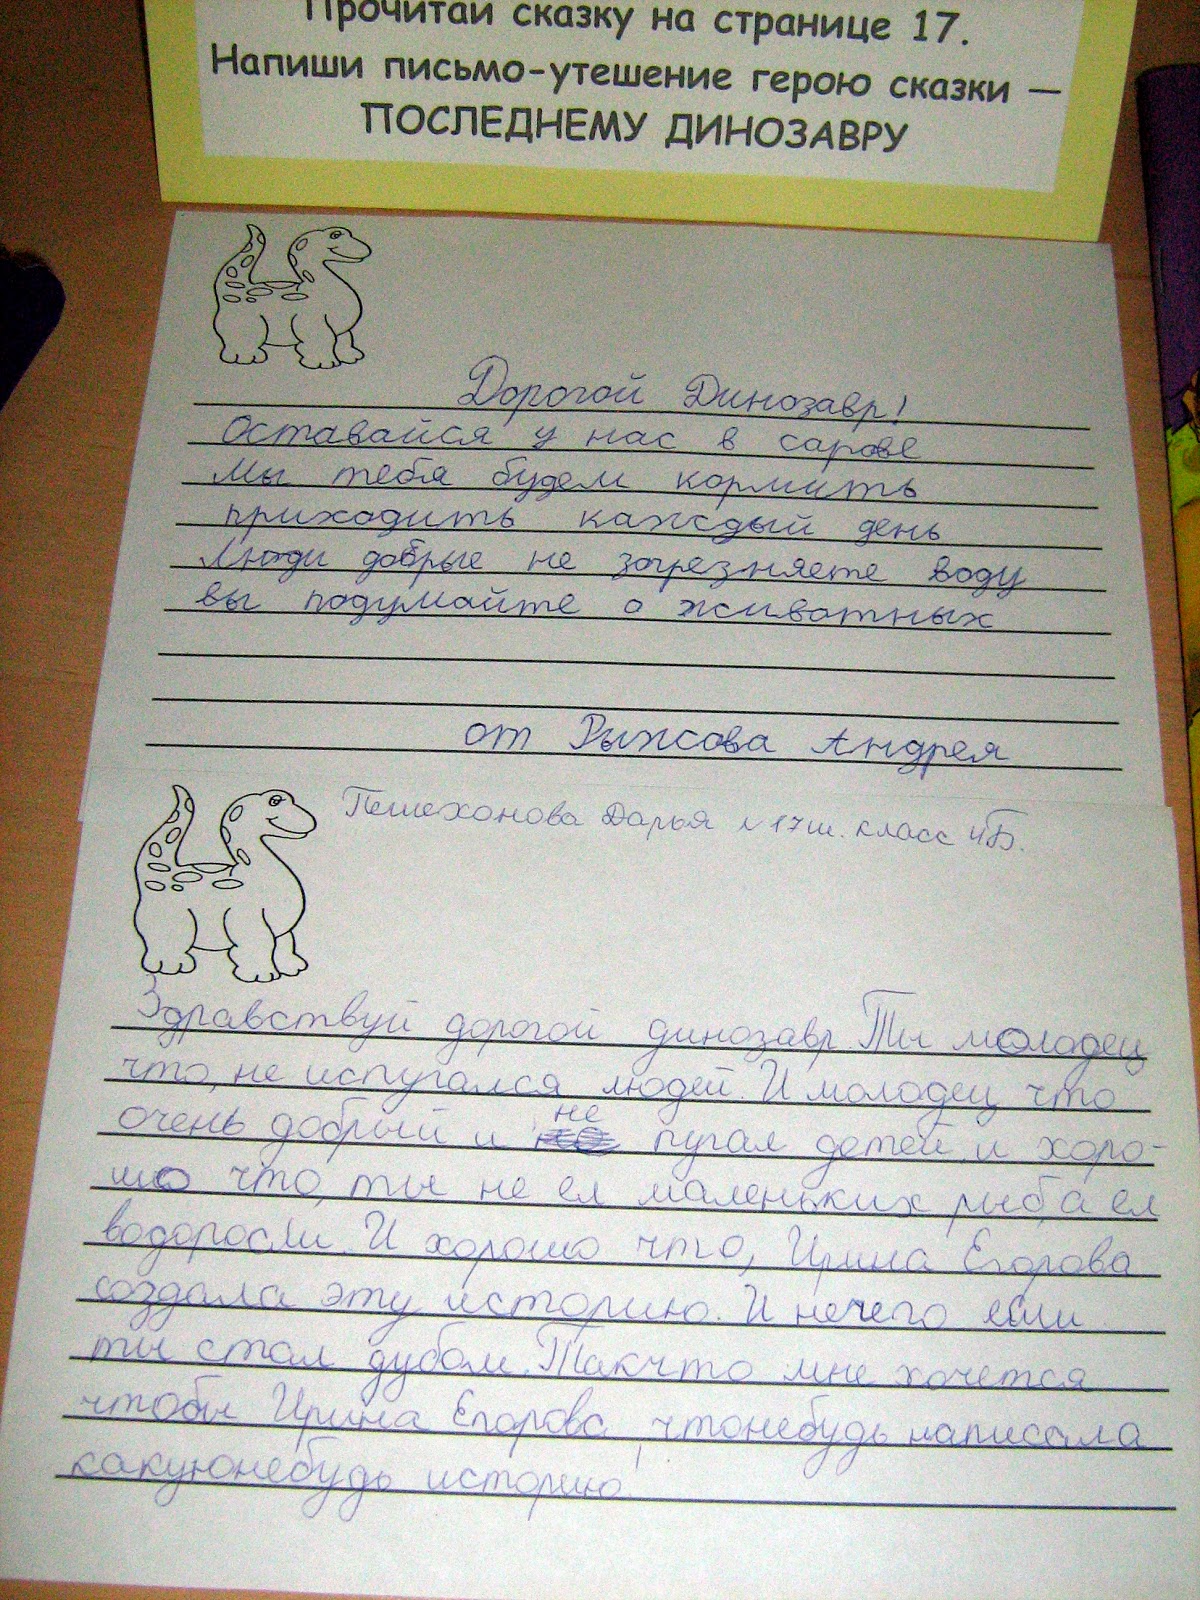 Прочитай сказку на странице 17.
Напиши письмо-утешение герою сказки —
ПОСЛЕДНЕМУ ДИНОЗАВРУ
Дорогой Динозавр!
Оставайся у нас в сарове
Мы тебя будем кормить
приходить каждый день
Люди добрые не загрезняете воду
вы подумайте о живатных
от Рыжова Андрея
Пешехонова Дарья №17ш. класс 4Б.
Здравствуй дорогой динозавр. Ты молодец
что, не испугался людей. И молодец, что
очень добрый и не пугал детей, и хоро-
шо что, ты не ел маленьких рыб, а ел
водоросли. И хорошо что, Ирина Егорова
создала эту историю. И нечего если
ты стал дубом. Такчто мне хочется
чтобы Ирина Егорова, чтонебудь написала
какуюнебудь историю!